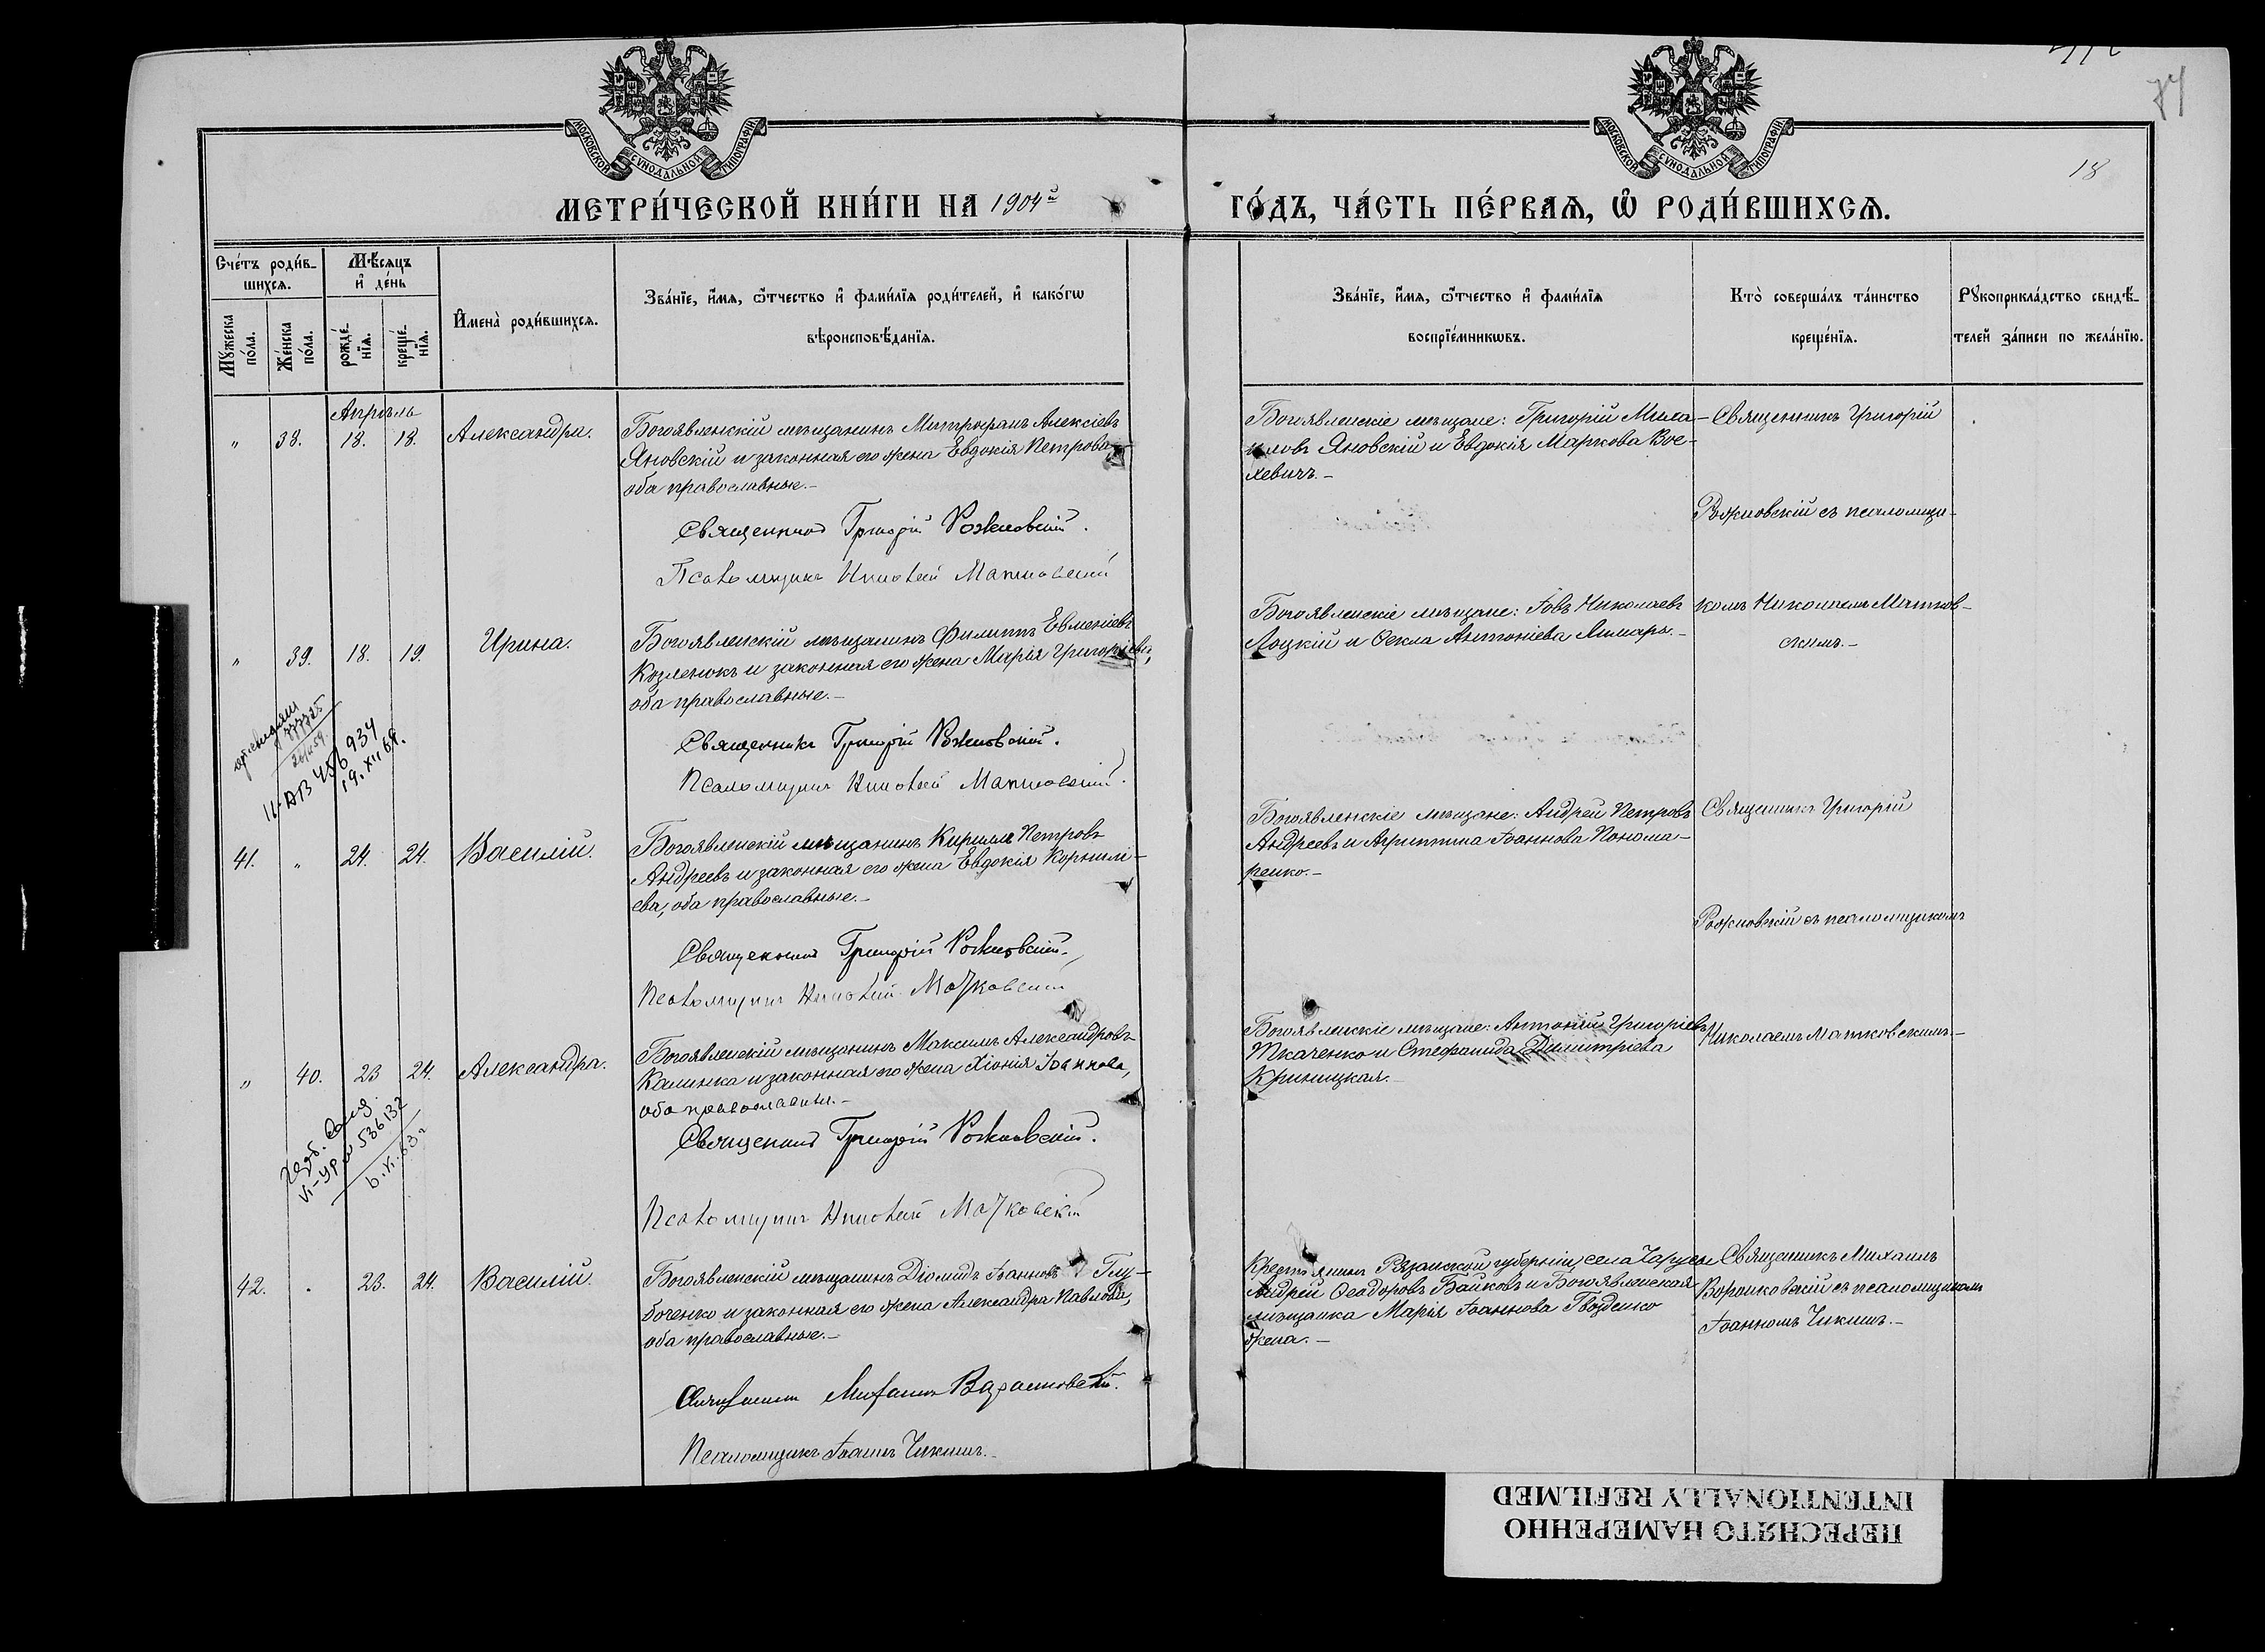 18
МОСКОВСКОЙ СѴНОДАЛЬНОЙ ТИПОГРАФІИ
МОСКОВСКОЙ СѴНОДАЛЬНОЙ ТИПОГРАФІИ
МЕТРИ́ЧЕСКОЙ КНИ́ГИ НА 1904й
ГО́ДЪ, ЧА́СТЬ ПЕ́РВАѦ, Ѡ҆ РОДИ́ВШИХСѦ.
Сче́тъ роди́в-
шихсѧ.
Мꙋ́жеска по́ла.
Же́нска по́ла.
Мѣ́сѧцъ
и҆ де́нь
рожде́-
нїѧ.
креще́-
нїѧ.
И҆мена̀ роди́вшихсѧ.
Зва́нїе, и҆́мѧ, ѻ҆́тчество и҆ фами́лїѧ роди́телей, и҆ како́гѡ
вѣроисповѣ́данїѧ.
Зва́нїе, и҆́мѧ, ѻ҆́тчество и҆ фами́лїѧ
воспрїе́мникѡвъ.
Кто̀ соверша́лъ та́инство
креще́нїѧ.
Рꙋкоприкла́дство свидѣ́-
телей за́писи по жела́нїю.
Апрѣль
" 38. 18. 18. Александра.
Богоявленскій мѣщанинъ Митрофанъ Алексіевъ
Яновскій и законная его жена Евдокія Петрова,
оба православные.-
Священникъ Григорій Рожновскій.
Псаломщикъ Николай Матковскій
Богоявленскіе мѣщане: Григорій Миха-
иловъ Яновскій и Евдокія Маркова Вое-
левичъ.-
Священникъ Григорій
Рожновскій съ псаломщи-
" 39. 18. 19. Ирина.
Богоявленскій мѣщанинъ Филиппъ Евменіевъ
Козленокъ и законная его жена Марія Григоріева,
оба православные.-
Священникъ Григорій Рожновскій.
Псаломщикъ Николай Матковскій.
Богоявленскіе мѣщане: Іовъ Николаевъ
Лоцкій и Ѳекла Антоніева Лимарь.-
комъ Николаемъ Матков-
скимъ.-
II-АВ 456934
19.XII 69.
41. " 24. 24. Василій.
Богоявленскій мѣщанинъ Кириллъ Петровъ
Андреевъ и законная его жена Евдокія Корнилі-
ева, оба православные.-
Священникъ Григорій Рожновскій.
Псаломщикъ Николай Матковскій
Богоявленскіе мѣщане: Андрей Петровъ
Андреевъ и Агриппина Іоаннова Понома-
ренко.-
Священникъ Григорій
Рожновскій съ псаломщикомъ
" 40. 23 24. Александра.
Богоявленскій мѣщанинъ Максимъ Александровъ
Калинка и законная его жена Хіонія Іоаннова,
оба православные.-
Священникъ Григорій Рожновскій.
Псаломщикъ Николай Матковскій
Богоявленскіе мѣщане: Антоній Григоріевъ
Ткаченко и Стефанида Димитріева
Криницкая.-
Николаемъ Матковскимъ.-
VI-УР № 536132
6.VI.63 г
42. " 23. 24. Василій.
Богоявленскій мѣщанинъ Діомидъ Іоанновъ Глу-
боченко и законная его жена Александра Павлова,
оба православные.-
Священникъ Михаилъ
Псаломщикъ Іоаннъ Чикишъ.-
Крестьянинъ Рязанской губерніи, села
Андрей Ѳеодоровъ Байковъ и Богоявленская
мѣщанка Марія Іоаннова Гвозденко
жена.-
Священникъ Михаилъ
съ псаломщикомъ
Іоанномъ Чикишъ.-
INTENTIONALLY REFILMED
ПЕРЕСНЯТО НАМЕРЕННО